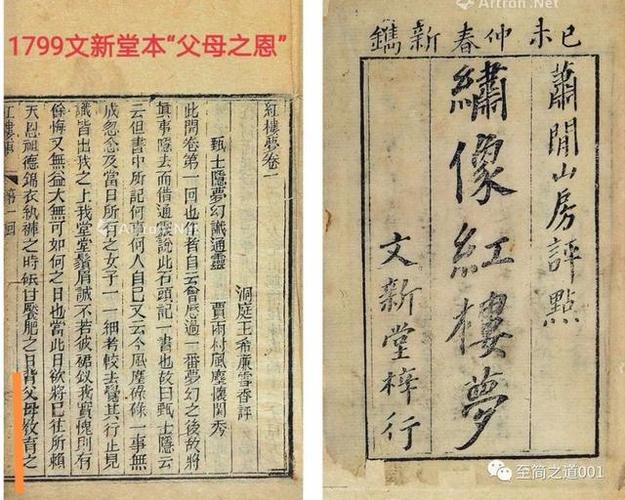 1799文新堂本“父母之恩”
紅樓夢卷一
洞庭王希廉雪香評
甄士隱夢幻識通靈 賈雨村風塵懷閨秀
此開卷第一回也作者自云曾歷過一番夢幻之後故將
眞事隱去而借通靈說此石頭記一書也故曰甄士隱云
云但書中所記何事何人自己又云今風塵碌碌一事無
成忽念及當日所有之女子一一細考較去覺其行止見
識皆出我之上我堂堂鬚眉誠不若彼裙釵我實愧則有
餘悔又無益大無可如何之日也當此日欲將已往所賴
天恩祖德錦衣紈袴之時飫甘饜肥之日背父母教育之
紅樓夢 第一回
Artron.Net
己未仲春新鐫
蕭閒山房評點
繡像紅樓夢
文新堂梓行
Artron.Net
至简之道001